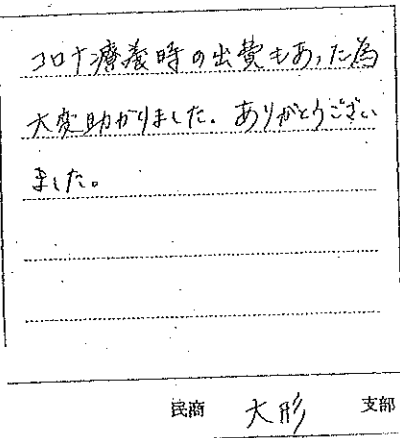 コロナ療養時の出費もあった為
大変助かりました。ありがとうござい
ました。
民商 大形 支部